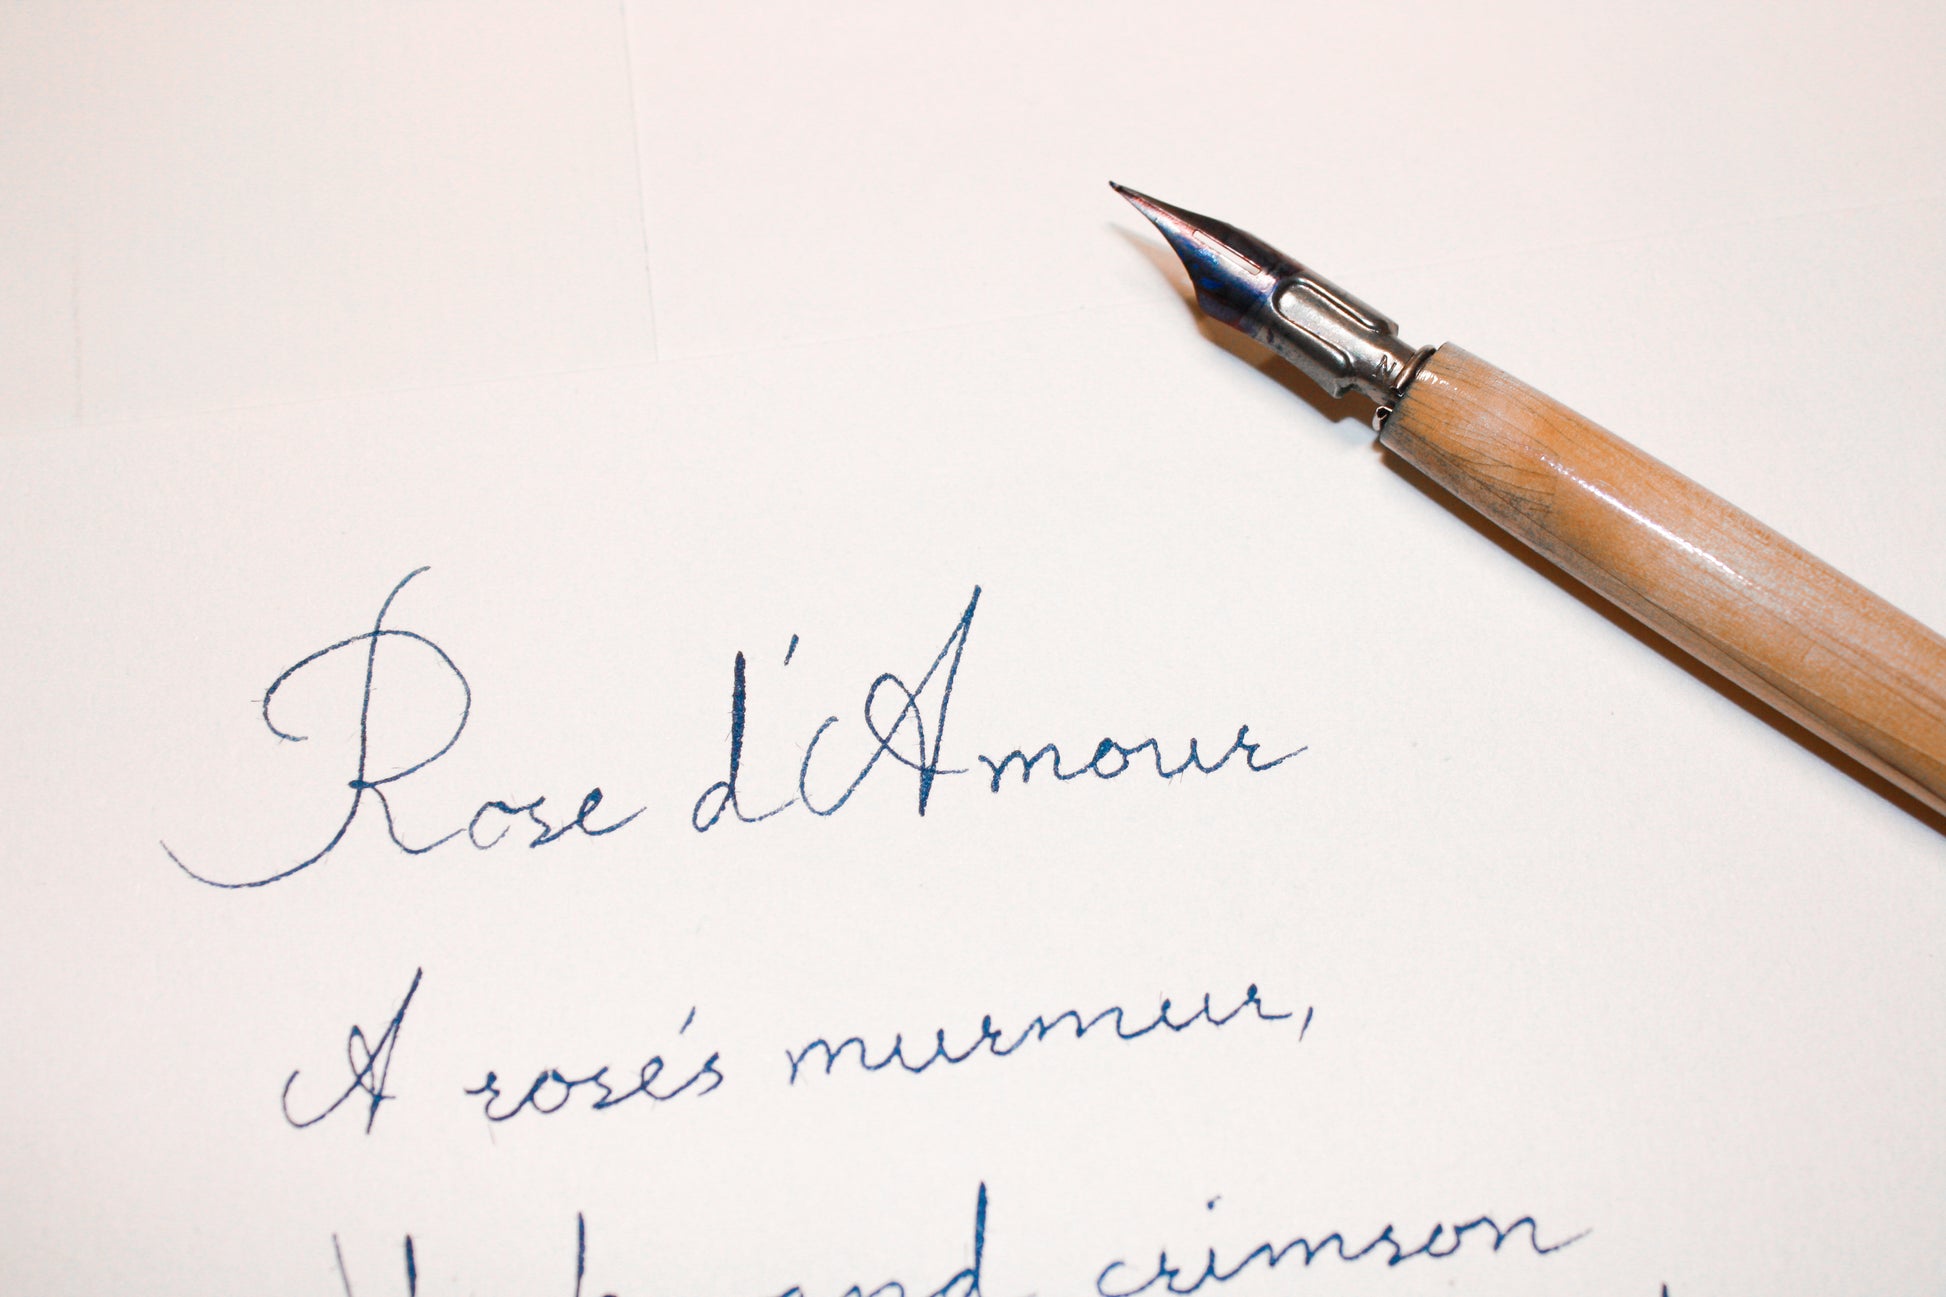 Rose d'Amour
A rose's murmur,
and crimson
N